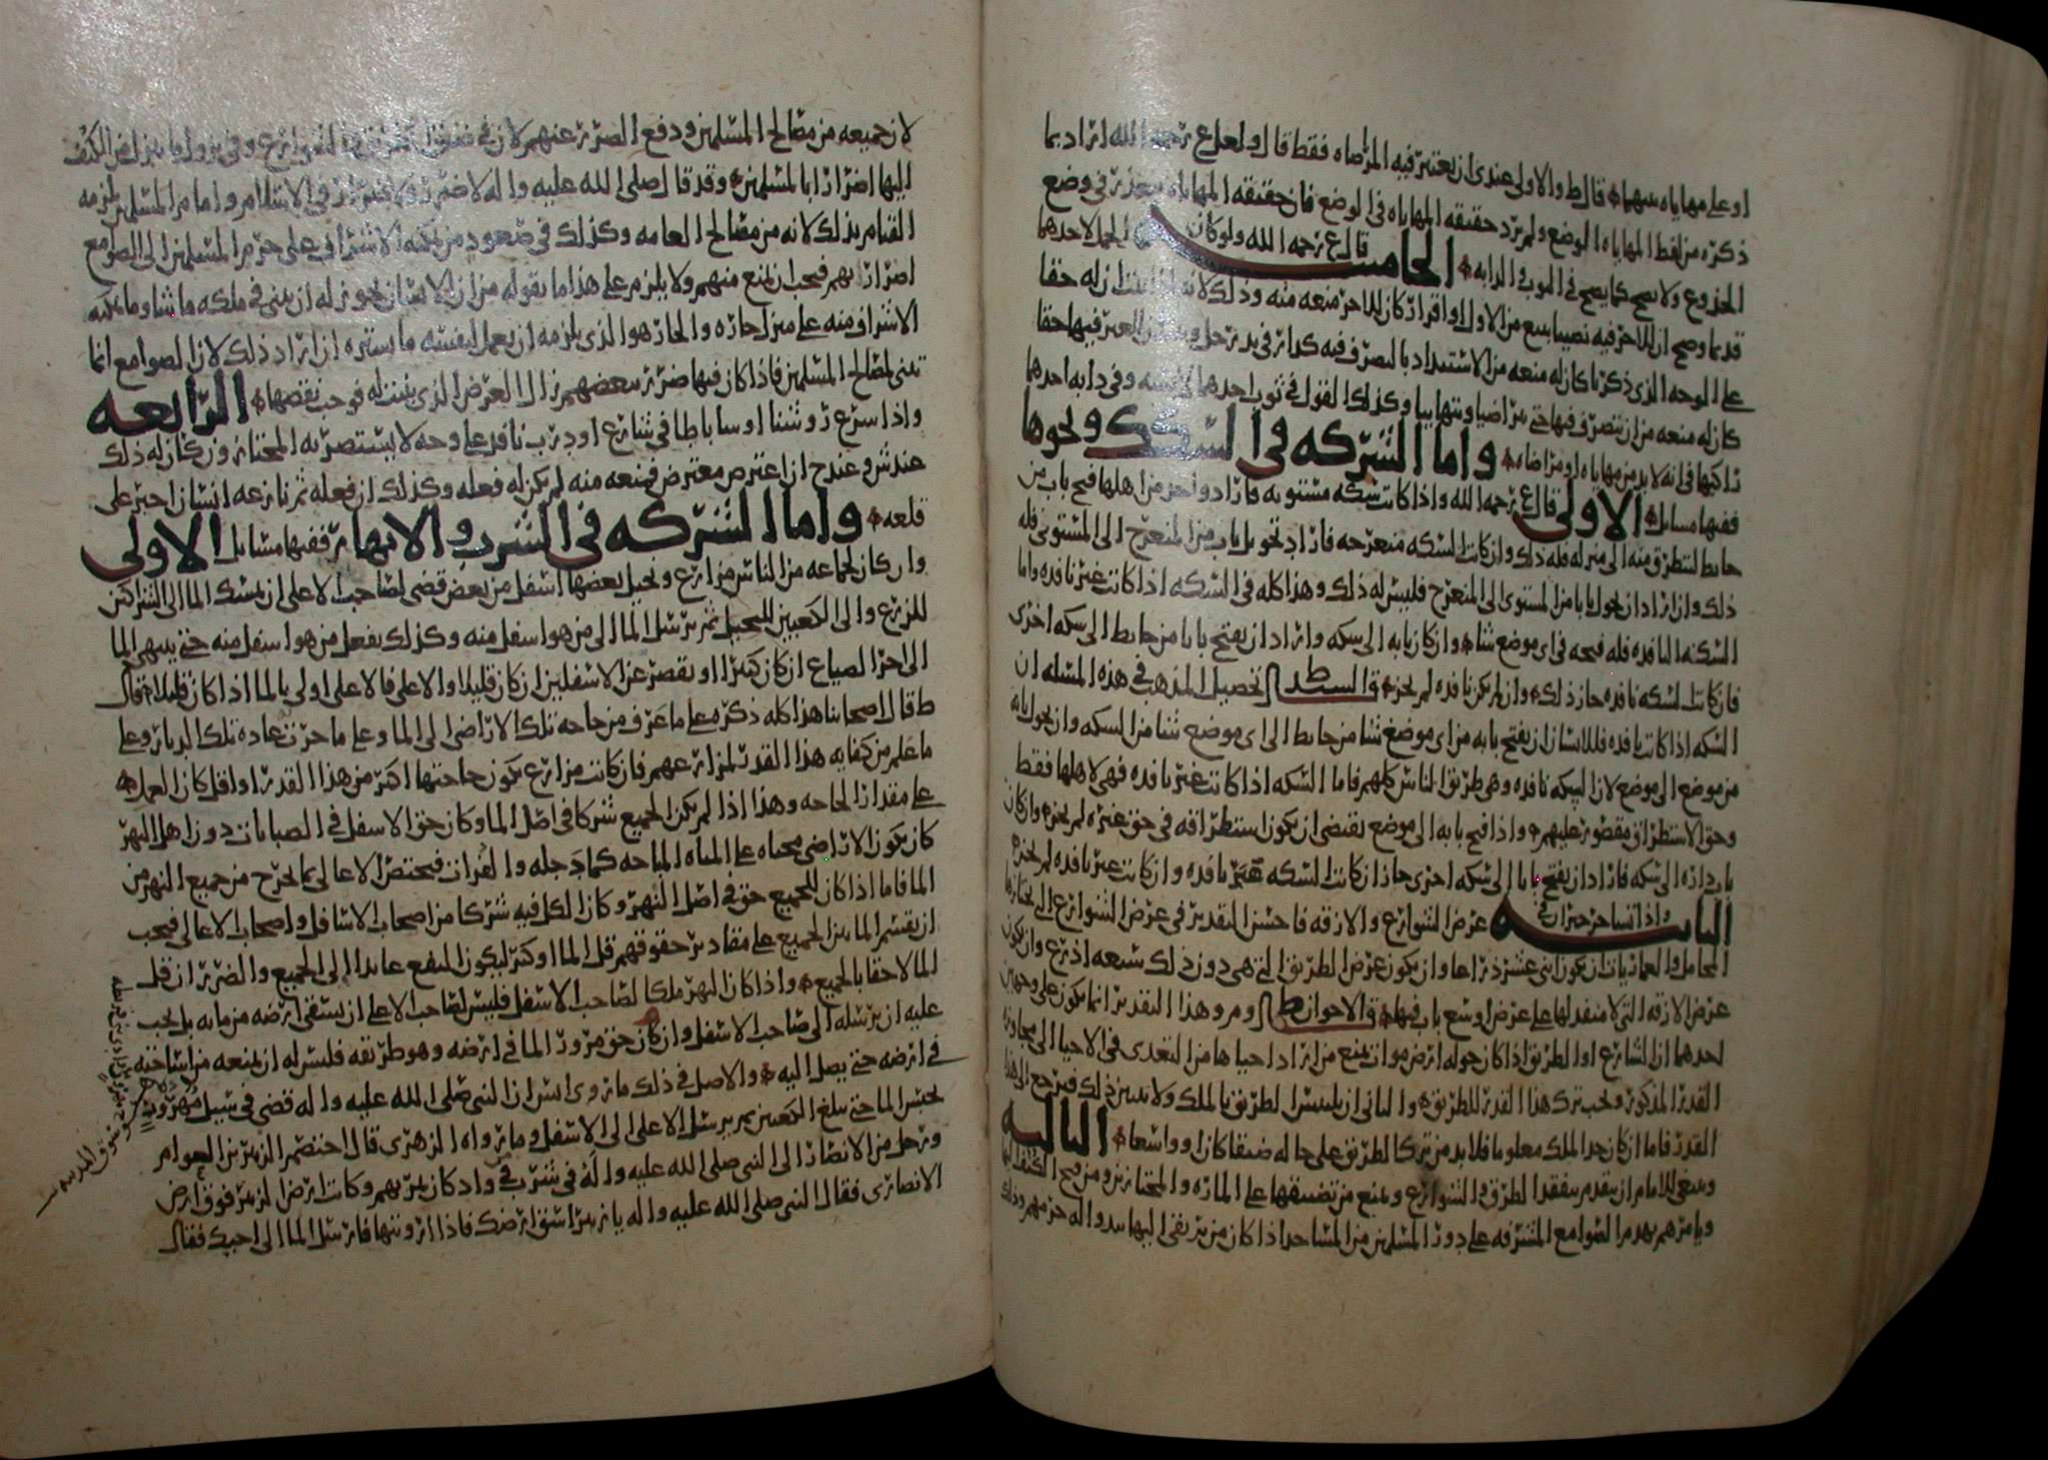 او على مهاياه بينهما قال ط والاولى عندى ان يعتبر فيه المراضاه فقط قال ولعل ع رحمه الله اراد بما
ذكره من لفظ المهاياه الوضع ولم يرد حقيقه المهاياه فى الوضع فان حقيقه المهاياه فى وضع
الجذوع ولا تصح كما يصح فى الثوب والدابه الخامسه قال ع رحمه الله ولو كان الحمل لاحدهما
قديما وصح ان للاخر فيه نصيبا ببيع من الاول او اقرار كان للاخر منعه منه وذلك لانه اذا ثبت ان له حقا
على الوجه الذى ذكرنا كان له منعه من الاستبداد بالتصرف فيه كدار فى يد رجل للغير فيها حقا
كان له منعه من ان يتصرف فيها حتى يتراضيا ويتهاييا وكذلك القول فى ثوب احدهما وفى دابه احدهما
راكبها فى انه لا بد من مهاياه او مراضاه واما الشركه فى السكك ونحوها
ففيها مسايل الاولى قال ع رحمه الله واذا كانت سكه مستويه فاراد واحد من اهلها فتح باب من
حايط لتطرق منه الى منزله فله ذلك وان كانت السكه منعرجه فاراد تحويل باب من المنعرج الى المستوى فله
ذلك وان اراد ان يحول بابا من المستوى الى المنعرج فليس له ذلك وهذا كله فى السكه اذا كانت غير نافده واما
السكه النافده فله فتحه فى اى موضع شا وان كان بابه الى سكه واراد ان يفتح بابا من حايط الى سكه اخرى
فان كانت السكه نافده جاز ذلك وان لم يكن نافده لم يجز قال السيد ط تحصيل المذهب فى هذه المسله ان
السكه اذا كانت نافده فللانسان ان يفتح بابه من اى موضع شا من حايط الى اى موضع شا من السكه وان يحول بابه
من موضع الى موضع لان السكه نافده وهى طريق الناس كلهم فاما السكه اذا كانت غير نافده فهى لاهلها فقط
وحق الاستطراق مقصور عليهم واذا فتح بابه الى موضع يقتضى ان يكون استطراقه فى حق غيره لم يجز وان كان
باب داره الى سكه فاراد ان يفتح بابا الى سكه اخرى جاز ان كانت السكه نافده وان كانت غير نافده لم يجز
الثانيه واذا تشاجر جيران فى عرض الشوارع والازقه فاحسن التقدير فى عرض الشوارع التى تجتازها
المحامل والعماريات ان يكون اثنى عشر ذراعا وان يكون عرض الطريق التى هى دون ذلك سبعه اذرع وان يكون
عرض الازقه التى لا منفد لها على عرض اوسع باب فيها قال الاخوان ط و م وهذا التقدير انما يكون على وجهين
احدهما ان الشارع او الطريق اذا كان حوله ارض موات يمنع من اراد احياها من التعدى فى الاحيا الى مجاوزه
القدر المذكور ويجب ترك هذا القدر للطريق والثانى ان يلتبس الطريق بالملك ولا يتبين ذلك فيرجع الى هذا
القدر فاما ان كان حد الملك معلوما فلا بد من ترك الطريق على حاله ضيقا كان او واسعا الثالثه
وينبغى للامام ان يقدم بتفقد الطرق والشوارع ويمنع من تضييقها على الماره والمجتازين ومن فتح الكنف اليها
ويامرهم بهدم الصوامع المشرفه على دور المسلمين من المساجد اذا كان من يرتقى اليها يبدوا له حرمهم وذلك
لان جميعه من مصالح المسلمين ودفع الضرر عنهم لان فى الشوارع وفى الكنف
اليها اضرارا بالمسلمين وقد قال صلى الله عليه واله لا ضرر ولا ضرار فى الاسلام وامام المسلمين يلزمه
القيام بذلك لانه من مصالح العامه وكذلك فى صعود من يمكنه الاشراف على حرم المسلمين الى الصوامع
اضرار بهم فيجب ان يمنع منهم ولا يلزم على هذا ما يقوله من ان الانسان يجوز له ان يبنى فى ملكه ما شا وما يمكنه
الاشراف منه على منزل جاره والجار هو الذى يلزمه ان يعمل لنفسه ما يستره ان اراد ذلك لان الصوامع انما
تبنى لمصالح المسلمين فاذا كان فيها ضرر ببعضهم زال الغرض الذى بنيت له فوجب نقضها الرابعه
واذا شرع روشنا او ساباطا فى شارع او درب نافد على وجه لا يستضر به المجتازون كان له ذلك
عند ش وعند ح ان اعترض معترض فمنعه منه لم يكن له فعله وكذلك ان فعله ثم نازعه انسان اجبر على
قلعه واما الشركه فى الشرب والانهار ففيها مسايل الاولى
وان كان لجماعه من الناس مزارع ونخيل بعضها اسفل من بعض قضى لصاحب الاعلى ان يمسك الما الى الشراكين
للزرع والى الكعبين للنخيل ثم يرسل الما الى من هو اسفل منه وكذلك يفعل من هو اسفل منه حتى ينتهى الما
الى اخر الضياع ان كان كثيرا او يقصر عن الاسفلين ان كان قليلا والاعلى فالاعلى اولى بالما اذا كان قليلا قال
ط قال اصحابنا هذا كله ذكره على ما عرف من حاجه تلك الاراضى الى الما وعلى ما جرت عاده تلك الديار وعلى
ما علم من كفايه هذا القدر لمزارعهم فان كانت مزارع يكون حاجتها اكثر من هذا القدر او اقل كان العمل
على مقدار الحاجه وهذا اذا لم يكن الجميع شركا فى اصل الما وكان حق الاسفل فى الصبابات دون اهل النهر
كان يكون الاراضى محياه على المياه المباحه كما دجله والفرات فيختص الاعالى بما يخرج من جميع النهر من
الما فاما اذا كان للجميع حق فى اصل النهر وكان الكل فيه شركا من اصحاب الاسافل واصحاب الاعالى فيجب
ان يقسم الما بين الجميع على مقادير حقوقهم قل الما او كثر ليكون النفع عايدا الى الجميع والضرر ان قل
الما لاحقا بالجميع واذا كان النهر ملكا لصاحب الاسفل فليس لصاحب الاعلى ان يسقى ارضه من مايه بل يجب
عليه ان يرسله الى صاحب الاسفل وان كان حق مرور الما فى ارضه وهو طريقه فليس له ان يمنعه من اساحته
فى ارضه حتى يصل اليه والاصل فى ذلك ما روى ان النبى صلى الله عليه واله قضى فى سيل مهزور
يحبس الما حتى يبلغ الكعبين ثم يرسل الاعلى الى الاسفل وما رواه الزهرى قال اختصم الزبير بن العوام
ورجل من الانصار الى النبى صلى الله عليه واله فى شرب فى واد كان يمر بهم وكانت ارض الزبير فوق ارض
الانصارى فقال النبى صلى الله عليه واله يا زبير اسق ارضك فاذا ارويتها فارسل الما الى اخيك فقال
سوق المدينه